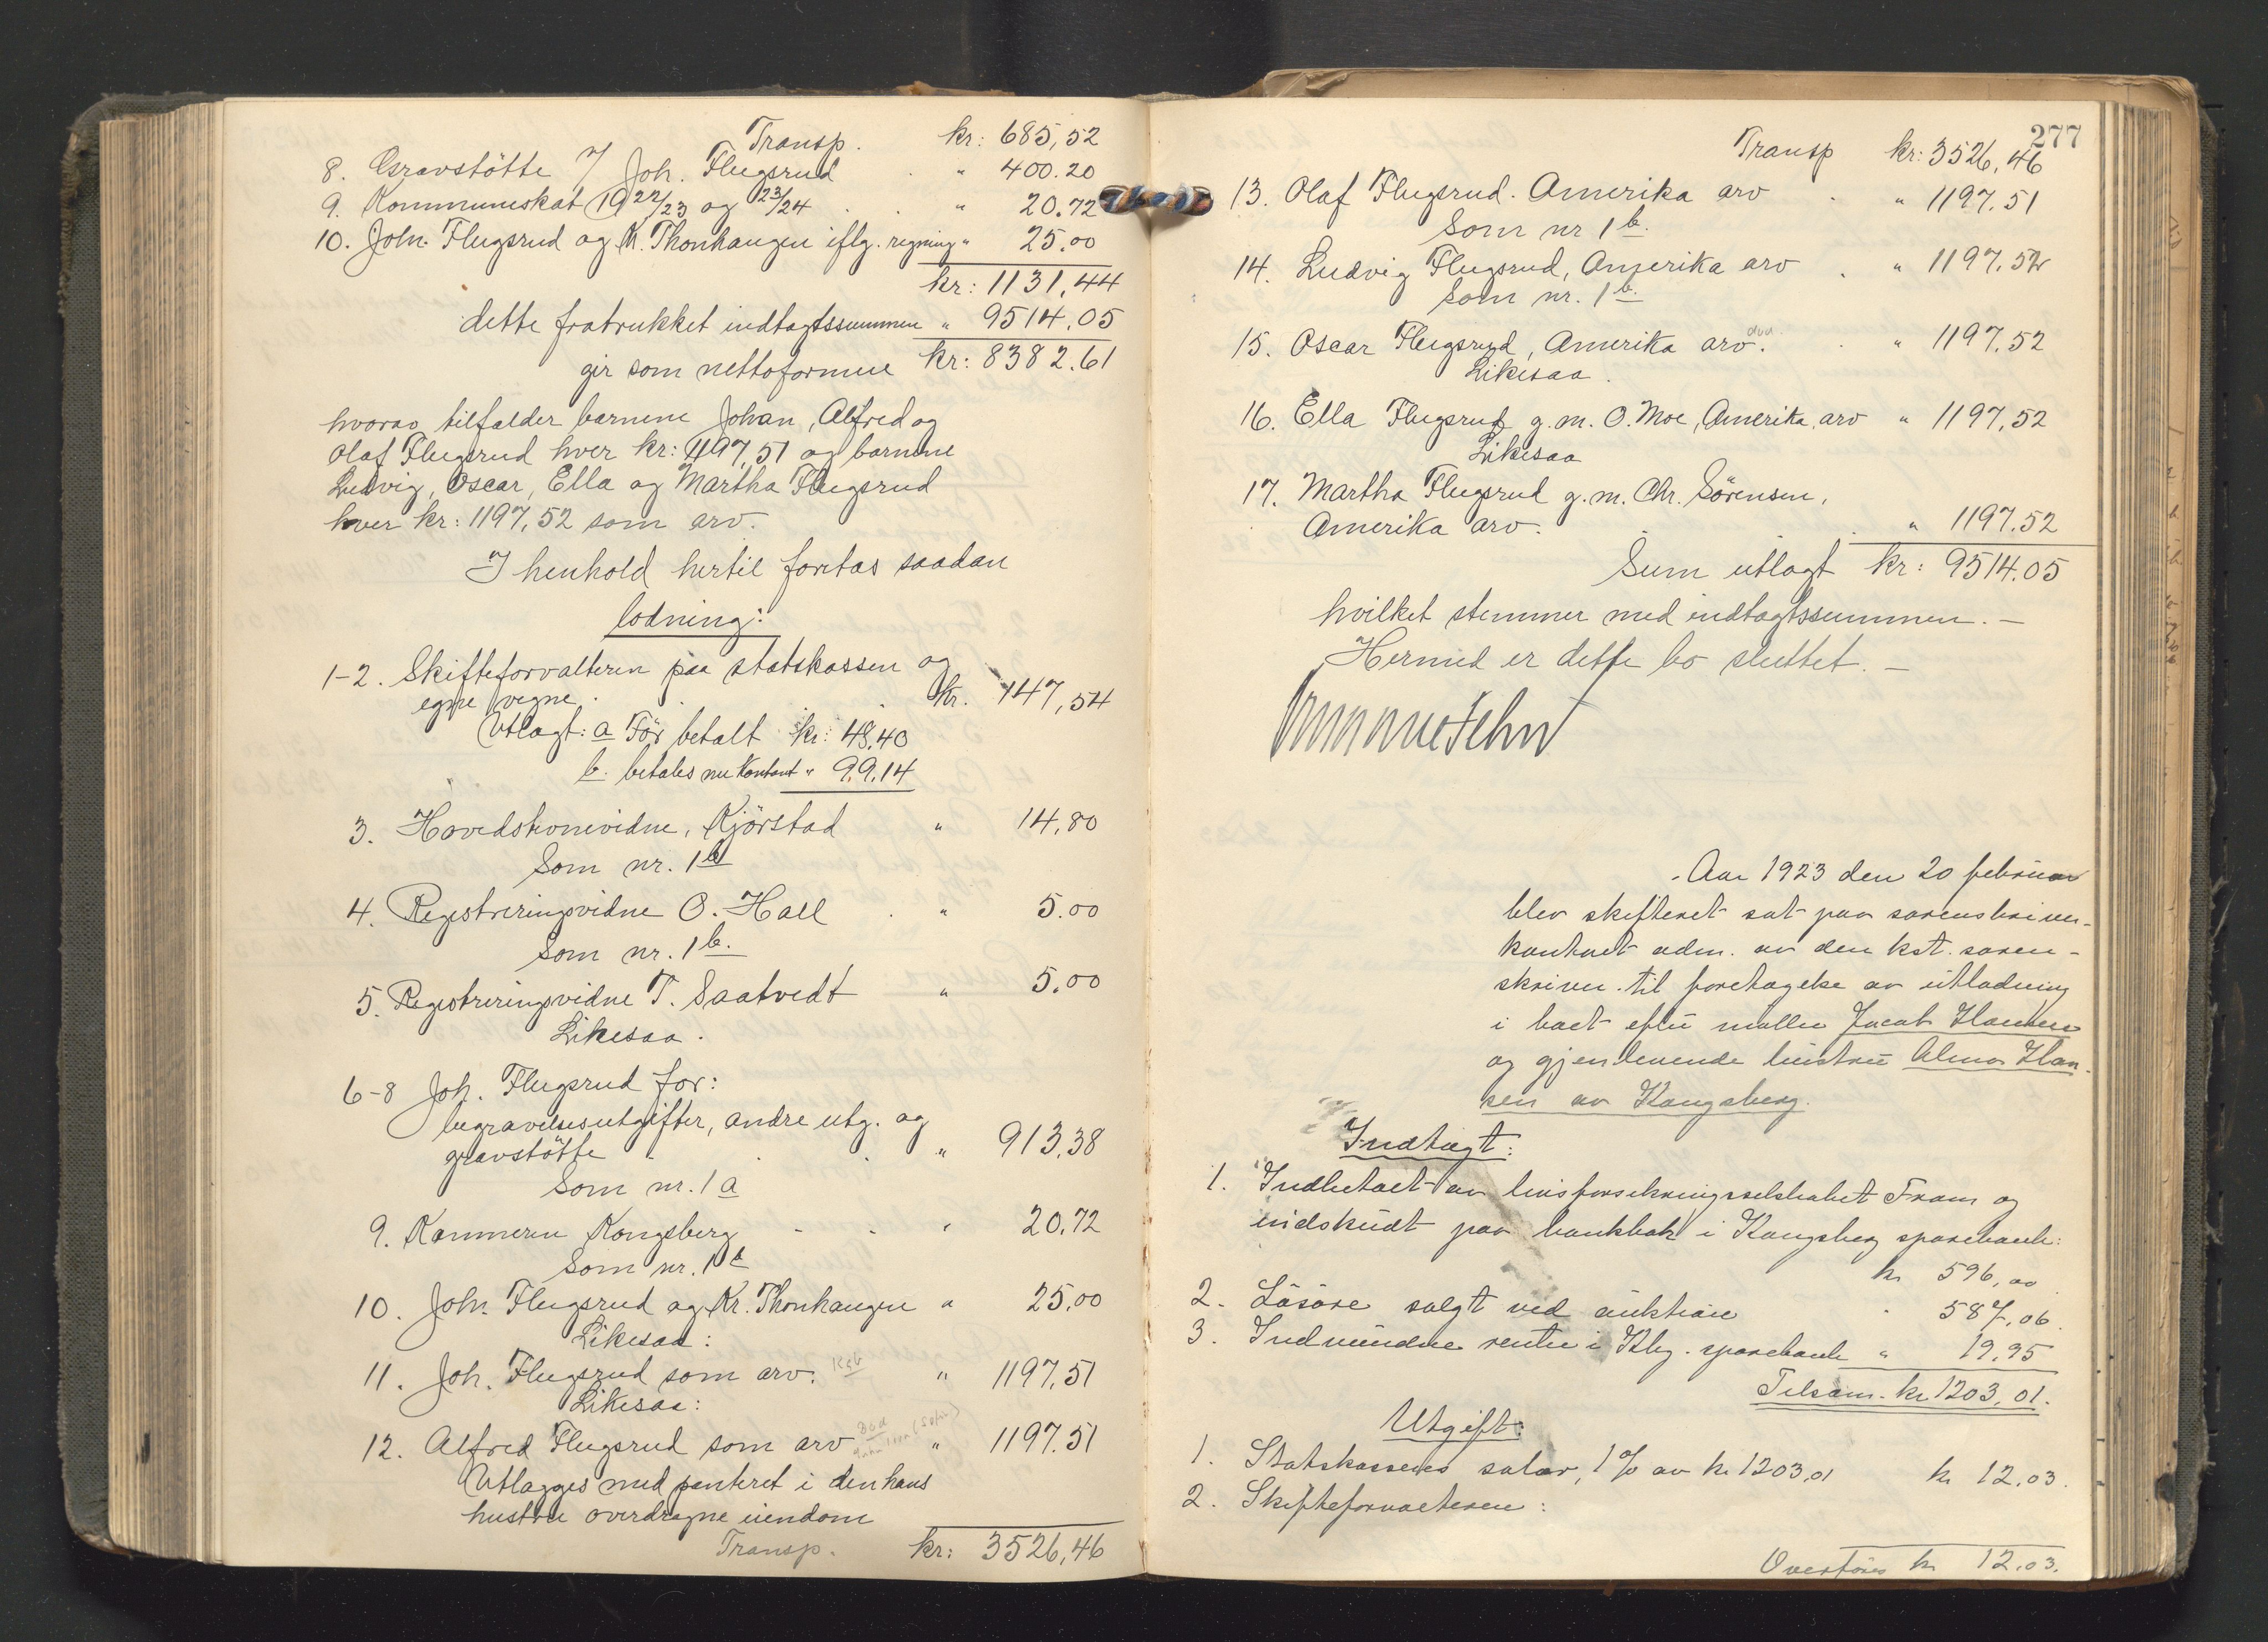 Transp. kr: 685,52
8. Gravstötte / Joh. Flugsrud " 400.20
9. Kommuneskat 1922/23 og 23/24 " 20.72
10. Joh. Flugsrud og K. Thonhaugen iflg. regning " 25.00
kr: 1131,44
dette fratrukket indtægtssummen " 9514.05
gir som nettoformue kr: 8382.61
hvorav tilfalder barnene Johan, Alfred og
Olaf Flugsrud hver kr: 1197,51 og barnene
Ludvig, Oscar, Ella og Martha Flugsrud
hver kr: 1197,52 som arv.
I henhold hertil foretas saadan
lodning:
1-2. Skifteforvalteren paa statskassen og
egne vegne. kr. 147,54
Utlagt: a För betalt kr: 48.40
b. betales nu kontant " 99.14
3. Hovedskrivevidne, Kjörstad " 14,80
Som nr. 1 b
4. Registreringsvidne O. Hall " 5.00
Som nr. 1 b.
5. Registreringsvidne T. Saatvedt " 5.00
Likesaa.
6-8 Joh. Flugsrud for:
begravelsesutgifter, andre utg. og
gravstötte " 913,38
Som nr. 1 a
9. Kæmneren Kongsberg " 20,72
Som nr. 1 b
10. Joh. Flugsrud og Kr. Thonhaugen " 25.00
Likesaa:
11. Joh. Flugsrud som arv. " 1197,51
Likesaa:
12. Alfred Flugsrud som arv " 1197.51
Utlægges med panteret i den hans
hustru overdragne eiendom
Transp. kr: 3526,46
277
Transp kr: 3526,46
13. Olaf Flugsrud. Amerika arv " 1197.51
Som nr 1 b.
14. Ludvig Flugsrud, Amerika arv " 1197.52
Som nr. 1 b.
15. Oscar Flugsrud, Amerika arv. död " 1197.52
Likesaa.
16. Ella Flugsrud g. m. O. Moe, Amerika, arv " 1197,52
Likesaa
17. Martha Flugsrud g. m. Chr. Sörensen,
Amerika arv. " 1197.52
Sum utlagt kr: 9514.05
hvilket stemmer med indtægtssummen. —
Hermed er dette bo sluttet. —
Aar 1923 den 20 februar
blev skifteret sat paa sorenskriver-
kontoret adm. av den kst. soren-
skriver til foretagelse av utlodning
i boet efter maller Jacob Hansen
og gjenlevende hustru Alma Han-
sen av Kongsberg.
Indtægt:
1. Indbetalt av livsforsikringsselskabet Fram og
indskudt paa bankbok i Kongsberg sparebank:
kr 596,00
2. Lösöre solgt ved auktion " 587,06
3. Indvundne renter i Kbg. sparebank " 19,95
Tilsam. kr 1203,01.
Utgift:
1. Statskassens salær, 1% av kr 1203,01 kr 12,03.
2. Skifteforvalteren:
Overföres kr 12.03.